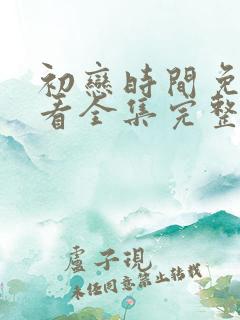 初戀時間免
看全集完整
盧子現
未經同意禁止轉載